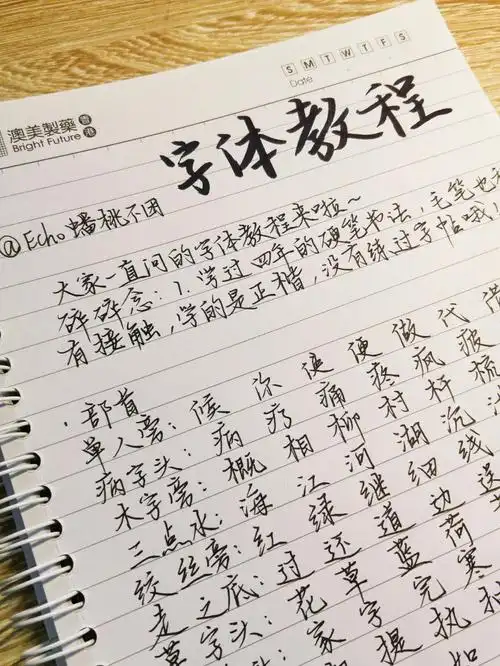 S M T W T F S
Date
澳美製藥 香港
Bright Future
字体教程
@Echo蟠桃不困
大家一直问的字体教程来啦~
碎碎念：1.学过四年的硬笔书法，毛笔也
有接触，学的是正楷，没有练过字帖哦！
·部首
单人旁：侯 你 便 做 代
病字头：病 疗 痛 疼 疯 疲
木字旁：概 相 柳 村 杆 梳
三点水：海 江 河 湖 沉
绞丝旁：红 绿 继 细 线
走之底：过 还 道 边 送
草字头：花 草 蓝 荷
家 字 完 寒
提 执